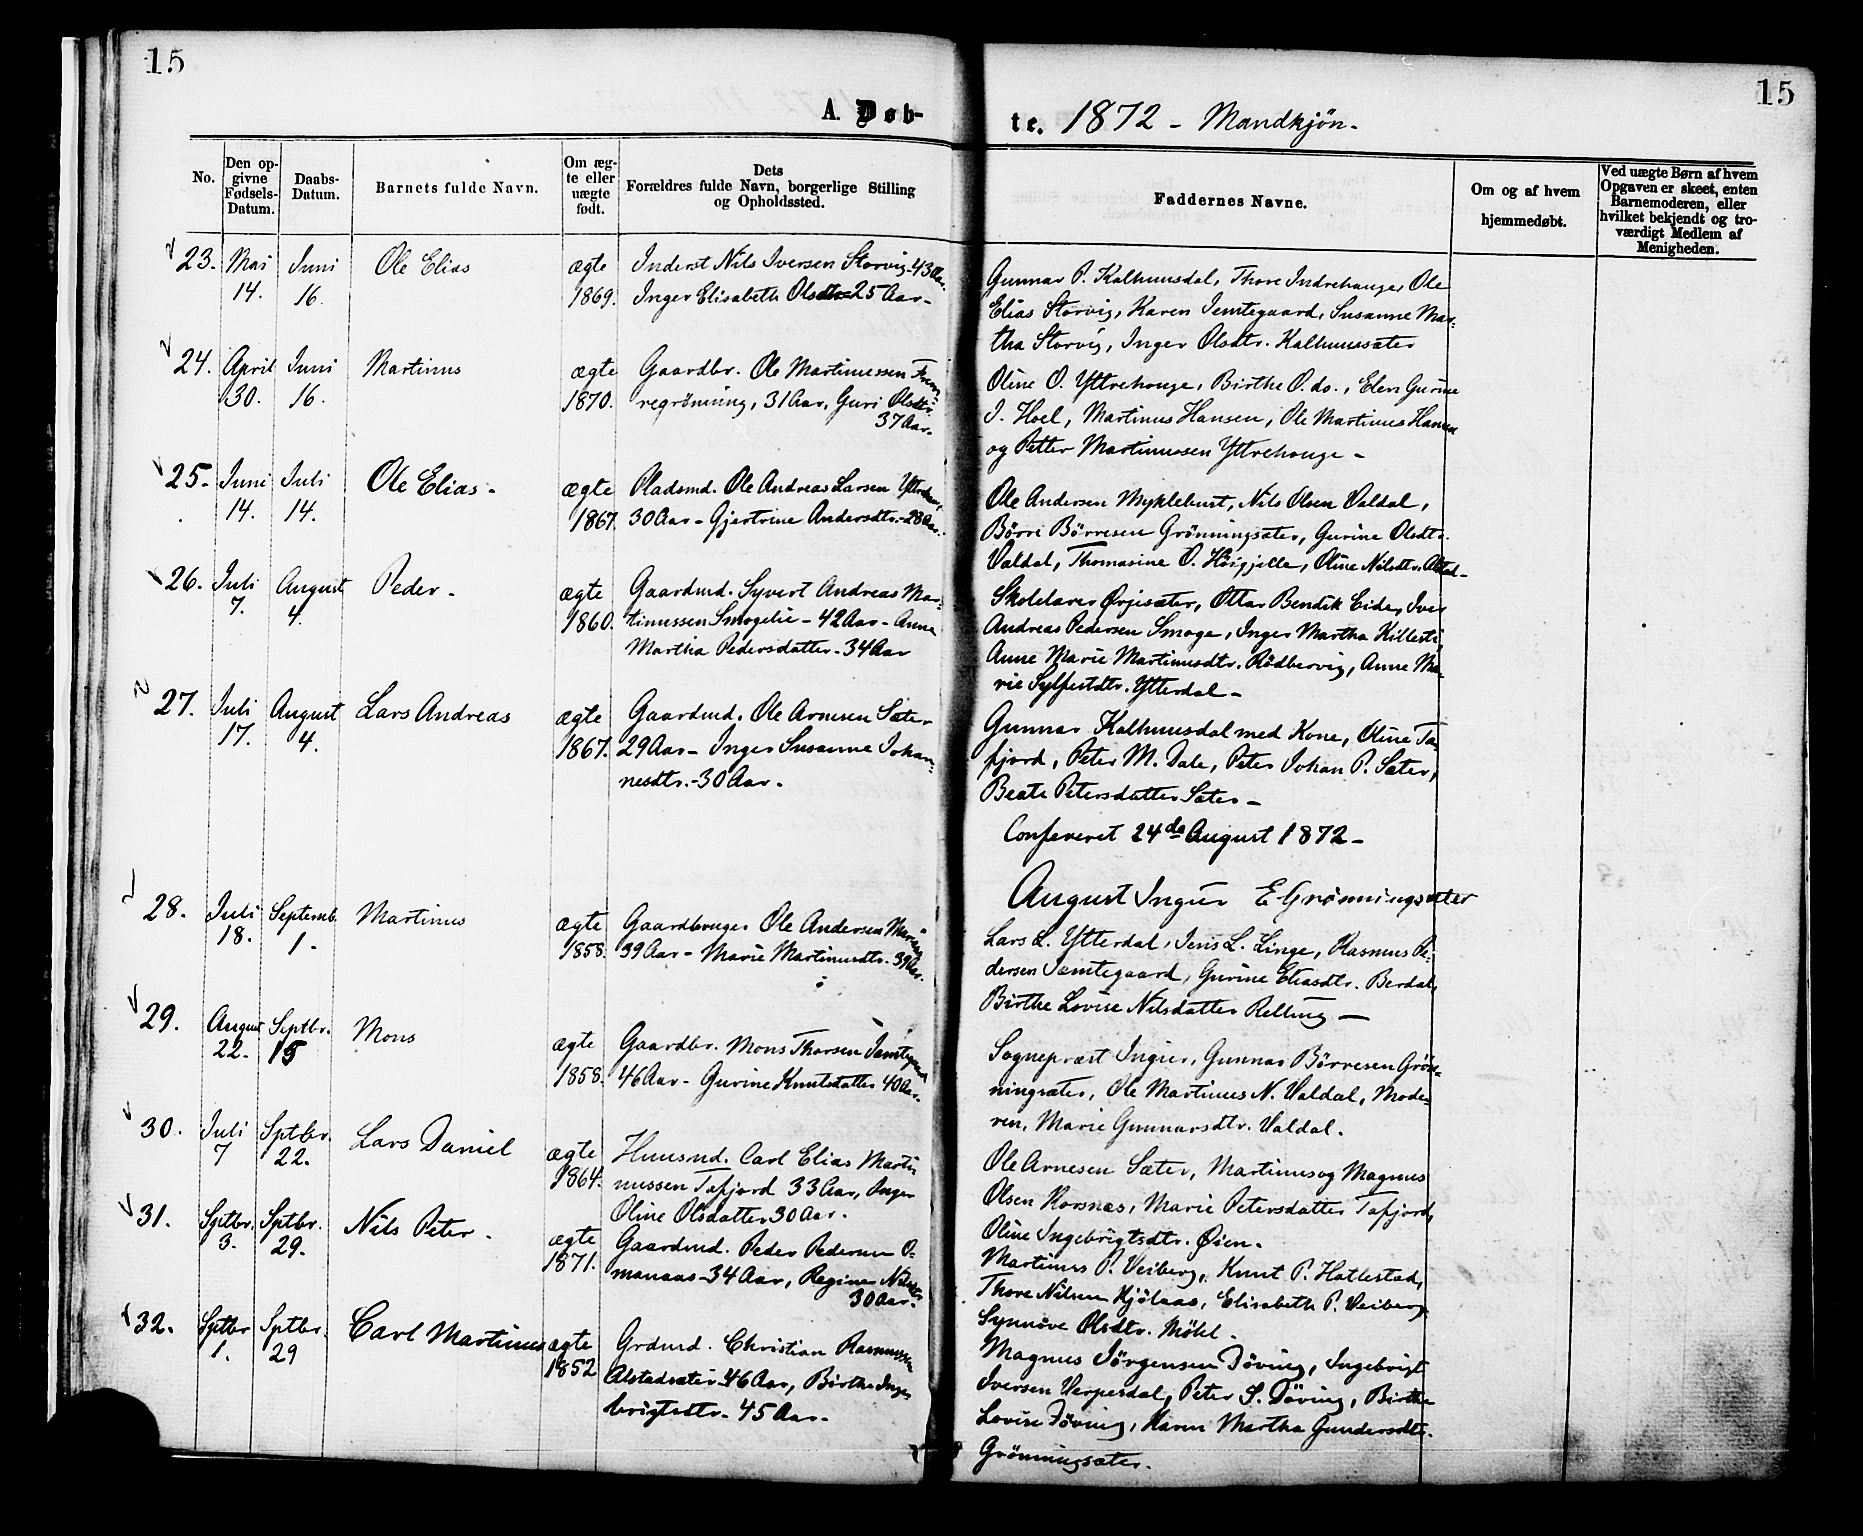 15
15
A. Døb-
te. 1872 - Mandkjön.
No.
Den op-
givne
Fødsels-
Datum.
Daabs-
Datum.
Barnets fulde Navn.
Om æg-
te eller
uægte
født.
Dets
Forældres fulde Navn, borgerlige Stilling
og Opholdssted.
Faddernes Navne.
Om og af hvem
hjemmedøbt.
Ved uægte Børn af hvem
Opgaven er skeet, enten
Barnemoderen, eller
hvilket bekjendt og tro-
værdigt Medlem af
Menigheden.
23. Mai 14. Juni 16. Ole Elias ægte 1869.
Inderst Nils Iversen Storvig - 43 Aar.
Inger Elisabeth Olsdtr 25 Aar -
Gunnar P. Kalhuusdal, Thore Indrehauge, Ole
Elias Storvig, Karen Jemtegaard, Susanne Mar-
tha Storvig, Inger Olsdtr. Kalhuussæter
24. April 30. Juni 16. Martinus ægte 1870.
Gaardbr. Ole Martinussen
regröning, 31 Aar, Guri Olsdtr.
37 Aar.
Oline O. Yttrehauge, Birthe O. do., Elen Gurine
I. Hoel, Martinus Hansen, Ole Martinus Hansen
og Petter Martinussen Yttrehauge -
25. Juni 14. Juli 14. Ole Elias - ægte 1867.
Pladsmd. Ole Andreas Larsen
30 Aar - Gjertrine Andersdtr. - 28 Aar.
Ole Andersen Myklebust, Nils Olsen Valdal,
Börre Börresen Grönningsæter, Gurine Olsdtr.
Valdal, Thomasine O. Höigjelle, Oline Nilsdtr. Alstad-
26. Juli 7. August 4. Peder - ægte 1860.
Gaardmd. Syvert Andreas Mar-
tinussen Smogelie - 42 Aar - Anne
Martha Pedersdatter - 34 Aar
Skolelærer Örjesæter, Ottar Bendik Eide, Iver
Andreas Pedersen Smoge, Inger Martha Killesti,
Anne Marie Martinusdtr. Rödbervig, Anne Ma-
rie Sylfestdtr. Ytterdal -
27. Juli 17. August 4. Lars Andreas ægte 1867.
Gaardmd. Ole Arnesen Sæter
29 Aar - Inger Susanne Johan-
nesdtr. - 30 Aar.
Gunnar Kalhuusdal med Kone, Oline Ta-
fjord, Peter M. Dale, Peter Johan P. Sæter,
Beate Petersdatter Sæter -
Confereret 24de August 1872 -
August Ingier E Grönningsæter
28. Juli 18. Septemb. 1 - Martinus ægte 1858.
Gaardbruger Ole Andersen
39 Aar - Marie Martinusdtr. 39 Aar.
Lars L. Ytterdal, Jens L. Linge, Rasmus Pe-
dersen Jemtegaard, Gurine Eliasdtr. Berdal,
Birthe Lovise Nilsdatter Relling -
29. August 22. Septbr. 15 Mons ægte 1858.
Gaardbr. Mons Thorsen Jemtegaard
46 Aar - Gurine Knutsdatter 40 Aar.
Sogneprest Ingier, Gunnar Börresen Grön-
ningsæter, Ole Martinus N. Valdal, Mode-
ren, Marie Gunnarsdtr. Valdal.
30. Juli 7 Sptbr. 22. Lars Daniel ægte 1864.
Huusmd. Carl Elias Marti
nussen Tafjord 33 Aar, Inger
Oline Olsdatter 30 Aar.
Ole Arnesen Sæter, Martinus og Magnus
Olsen Korsnæs, Marie Petersdatter Tafjord,
Oline Ingebrigtsdtr. Öien.
31. Sptbr. 3. Sptbr. 29. Nils Peter - ægte 1871.
Gaardmd. Peder Pedersen O-
manaas - 34 Aar, Regine Nilsdtr
30 Aar.
Martinus P. Veiberg, Knut P. Hatlestad,
Thore Nilsen Kjölaas, Elisabeth P. Veiberg,
Synnöve Olsdtr. Möhl.
32. Sptbr 1. Sptbr. 29 Carl Martinus ægte 1852
Grdmd. Christian Rasmussen
Alstadsæter - 46 Aar, Birthe Inge
brigtsdtr. - 45 Aar.
Magnus Jörgensen Döving, Ingebrigt
Iversen Verpesdal, Peter S. Döving, Birthe
Lovise Döving, Karen Martha Gundersdtr.
Grönningsæter.